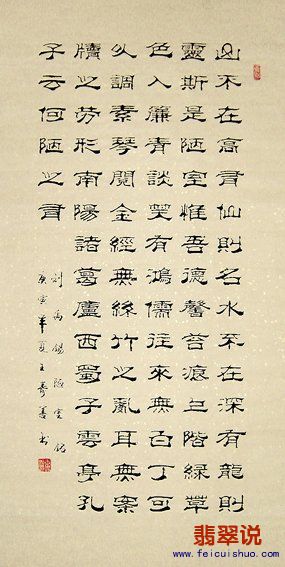 山不在高有仙則名水不在深有龍則
靈斯是陋室惟吾德馨苔痕上階綠草
色入簾青談笑有鴻儒往來無白丁可
以調素琴閱金經無絲竹之亂耳無案
牘之勞形南陽諸葛廬西蜀子雲亭孔
子云何陋之有
劉禹錫陋室銘
庚寅年夏王書
翡翠说
www.feicuishuo.com